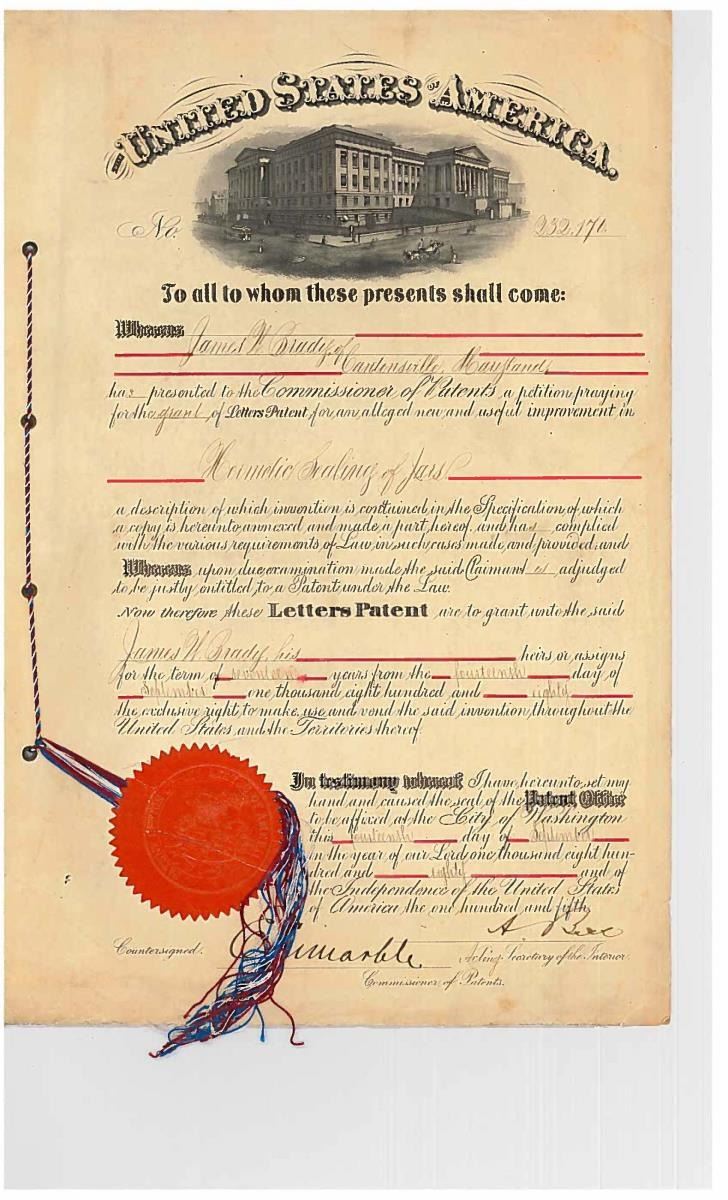 THE UNITED STATES OF AMERICA.
No. 232,176
To all to whom these presents shall come:
Whereas James W. Brady, of
Cantonsville, Maryland,
has presented to the Commissioner of Patents, a petition praying
for the grant of Letters Patent, for an alleged new and useful improvement in
Hermetic Sealing of Jars
a description of which invention is contained in the Specification, of which
a copy is hereunto annexed and made a part hereof, and has complied
with the various requirements of Law in such cases made and provided, and
Whereas upon due examination made the said Claimant is adjudged
to be justly entitled to a Patent under the Law.
Now therefore these Letters Patent are to grant unto the said
James W. Brady, his heirs or assigns
for the term of seventeen years from the fourteenth day of
September one thousand eight hundred and eighty
the exclusive right to make, use and vend the said invention throughout the
United States, and the Territories thereof.
In testimony whereof, I have hereunto set my
hand and caused the seal of the Patent Office
to be affixed at the City of Washington
this fourteenth day of September
in the year of our Lord one thousand eight hun-
dred and eighty and of
the Independence of the United States
of America the one hundred and fifth.
A. Bell
Countersigned. Marble Acting Secretary of the Interior.
Commissioner of Patents.